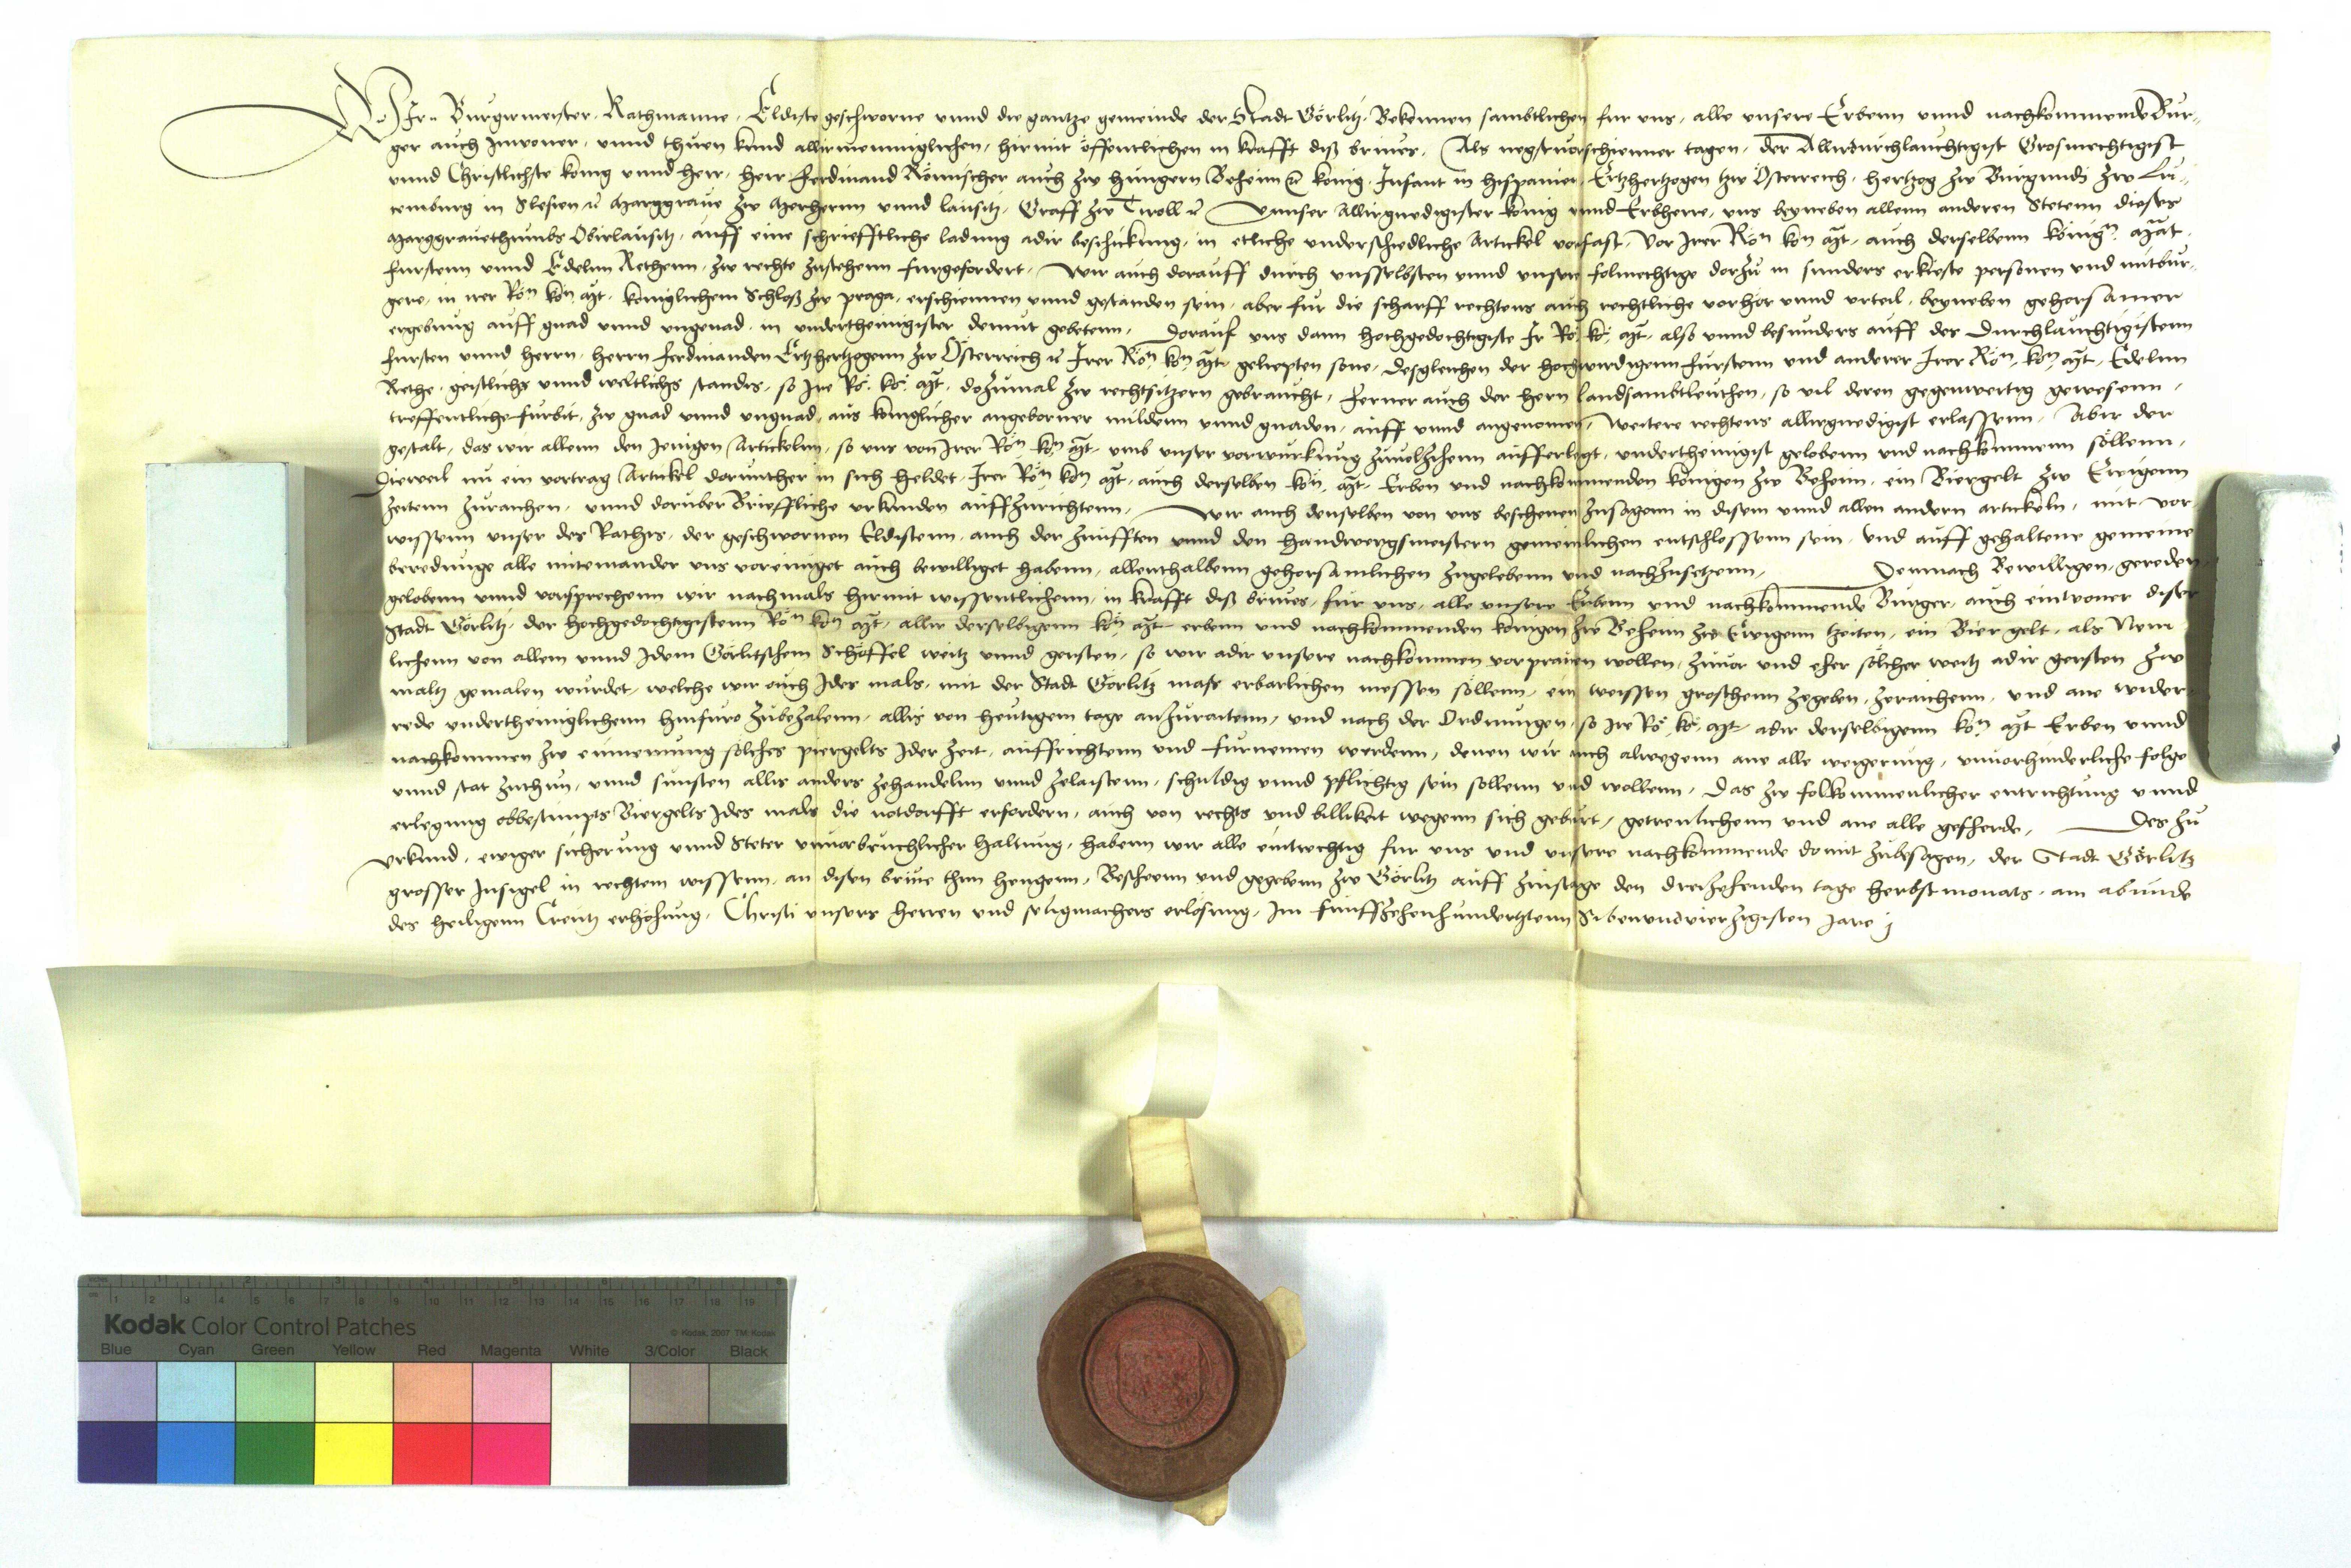 Wir Burgermeister, Rathmanne, Eldiste geschworne unnd die gantze gemeinde der Stadt Görlitz, Bekennen sambtlichen fur uns, alle unsere Erbenn unnd nachkommende Bur-
ger auch Inwoner, unnd thuen kund allirmenniglichen, hirmit öffentlichen in krafft diß brives, Als negstvorschienner tagen, der Allirdurchlauchtigist Grosmechtigist
unnd Christlichste konig unnd herr, herr Ferdinand Römischer auch zw hungern Beheim konig, Infant in hispanien, Ertzhertzogen tzw Österreich, hertzog zw Burgundi zw Lu-
cemburg in Slesien Marggrave zw Merhernn unnd lausitz, Graff zw Tiroll Unnser Allirgnedigister konig unnd Erbherre, uns beyneben allenn anderen Stetenn dieses
Marggravethumbs Obirlausitz, auff eine schriefftliche ladung adir beschickung, in etliche underschiedliche Artickel vorfast, Vor Irer Rön kön Mt, auch derselbenn könign Mat
fursten unnd Edelnn Rethenn, zw rechte zustehenn furgefordert, Wir auch dorauff durch unsselbsten unnd unsere folmechtige dorzu in sunders erkieste personen und mitbur-
gere, in irer Rön kön Mt, königlichem Schloß zw praga, erschiennen unnd gestanden sein, aber fur die scharff rechtens auch rechtliche vorhör unnd urteil, beyneben gehorsamer
ergebung auff gnad unnd ungenad, in underthenigister demut gebetenn, Dorauf uns dann hochgedochtigiste Ir Rö kö Mt, also unnd besunders auff des Durchlauchtigistenn
fursten unnd herrn, herrn Ferdinanden Ertzhertzogenn zw Österreich Irer Rön kön Mt, geliepten sone, desgleichen der hochwirdigenn furstenn und anderer Irer Rön kön Mt, Edelnn
Rethe, geistlichs unnd weltlichs standes, so Ire Rö kö Mt, dozumal zw rechtsitzern gebraucht, ferner auch der hern landsambtleuthen, so vil deren gegenwertig gewesenn,
treffentliche furbit, zw gnad unnd ungnad, aus königlicher angeborner mildenn unnd gnaden, auff unnd angenomen, weitere rechtens allirgnedigist erlassenn, Abir der
gestalt, das wir allenn den Jenigen Artickelnn, so uns von Irer Rön kön Mt, umb unser vorwurkung zuvolzihenn aufferlegt, underthenigist gelobenn und nachkommenn söllenn,
Dieweil nu ein vortrag Artickel dorunther in sich heldet, Irer Rön kön Mt, auch derselben kön Mt, Erben und nachkommenden königen zw Beheim, ein Biergelt zw Ewigenn
Zeitenn zuraichen, unnd doruber Brieffliche urkunden auffzurichtenn, Wir auch denselben von uns beschenen zusagenn in disem unnd allen andern artickeln, mit vor
wissenn unser des Rathes, der geschwornen Eldistenn, auch der Zunfften unnd den handwergsmeistern gemeinlichen entschlossenn sein, und auff gehaltene gemeine
beredunge alle miteinander uns voreiniget auch bewilliget habenn, allenthalbenn gehorsamlichen zugelebenn und nachzusetzenn, Demnach Bewilligen, gereden
gelobenn unnd vorsprechenn wir nachmals hirmit wissentlichenn, in krafft diß brives, fur uns, alle unsere Erbenn und nachkommende Burger, auch einwoner diser
Stadt Görlitz, der hochgedochtigistenn Rön kön Mt, aller derselbigenn kön Mt erbenn und nachkommenden konigen zw Beheim zw Ewigenn tzeiten, ein Bier gelt, als Nem
lichenn von allem unnd Idem Görlitschem Schöffel weitz unnd gersten, so wir adir unsere nachkommen vorprauen wollen, zuvor und eher sölcher weitz adir gersten zw
maltz gemalen wurdet, welche wir auch Ides mals, mit der Stadt Görlitz mass erbarlichen messen söllenn, ein weissen groschenn zegeben, zeraichenn, und ane wider-
rede underthenniglichenn hinfuro zubezalenn, allis von heutigem tage anzuraitenn, und nach der Ordnungen, so Ire Rö kö Mt, adir derselbigenn kön Mt Erben unnd
nachkommen zw einnemung solches piergelts Ider zeit, auffrichtenn und furnemen werdenn, denen wir auch alwegenn ane alle weigerung, unvorhinderliche folge
unnd stat zuthun, unnd sunsten allis anders zehandelnn unnd zelaistenn, schuldig unnd pflichtig sein sollenn und wollenn, Das zw folkommenlicher entrichtung unnd
erlegung obbestimpts Biergelts Ides mals die notdorfft erfordern, auch von rechts und billikeit wegenn sich geburt, getreulichenn und ane alle geferde, Des zu
Urkund, ewiger sicherung unnd Steter unvorbruchlicher haltung, habenn wir alle eintrechtig fur uns und unsere nachkommende domit zubesagen, der Stadt Görlitz
grosser Insigel in rechtem wissenn, an disen brive thun hengenn, Bescheenn und gegebenn zw Görlitz auff Zinstage den dreizehenden tage herbstmonats, am abunde
des heiligenn Creutz erhöhung, Christi unsers herren und seligmachers erlösung, Im funffzehenhundertztenn Sibenundvierzigisten Jare
Kodak Color Control Patches
© Kodak, 2007 TM: Kodak
Blue Cyan Green Yellow Red Magenta White 3/Color Black